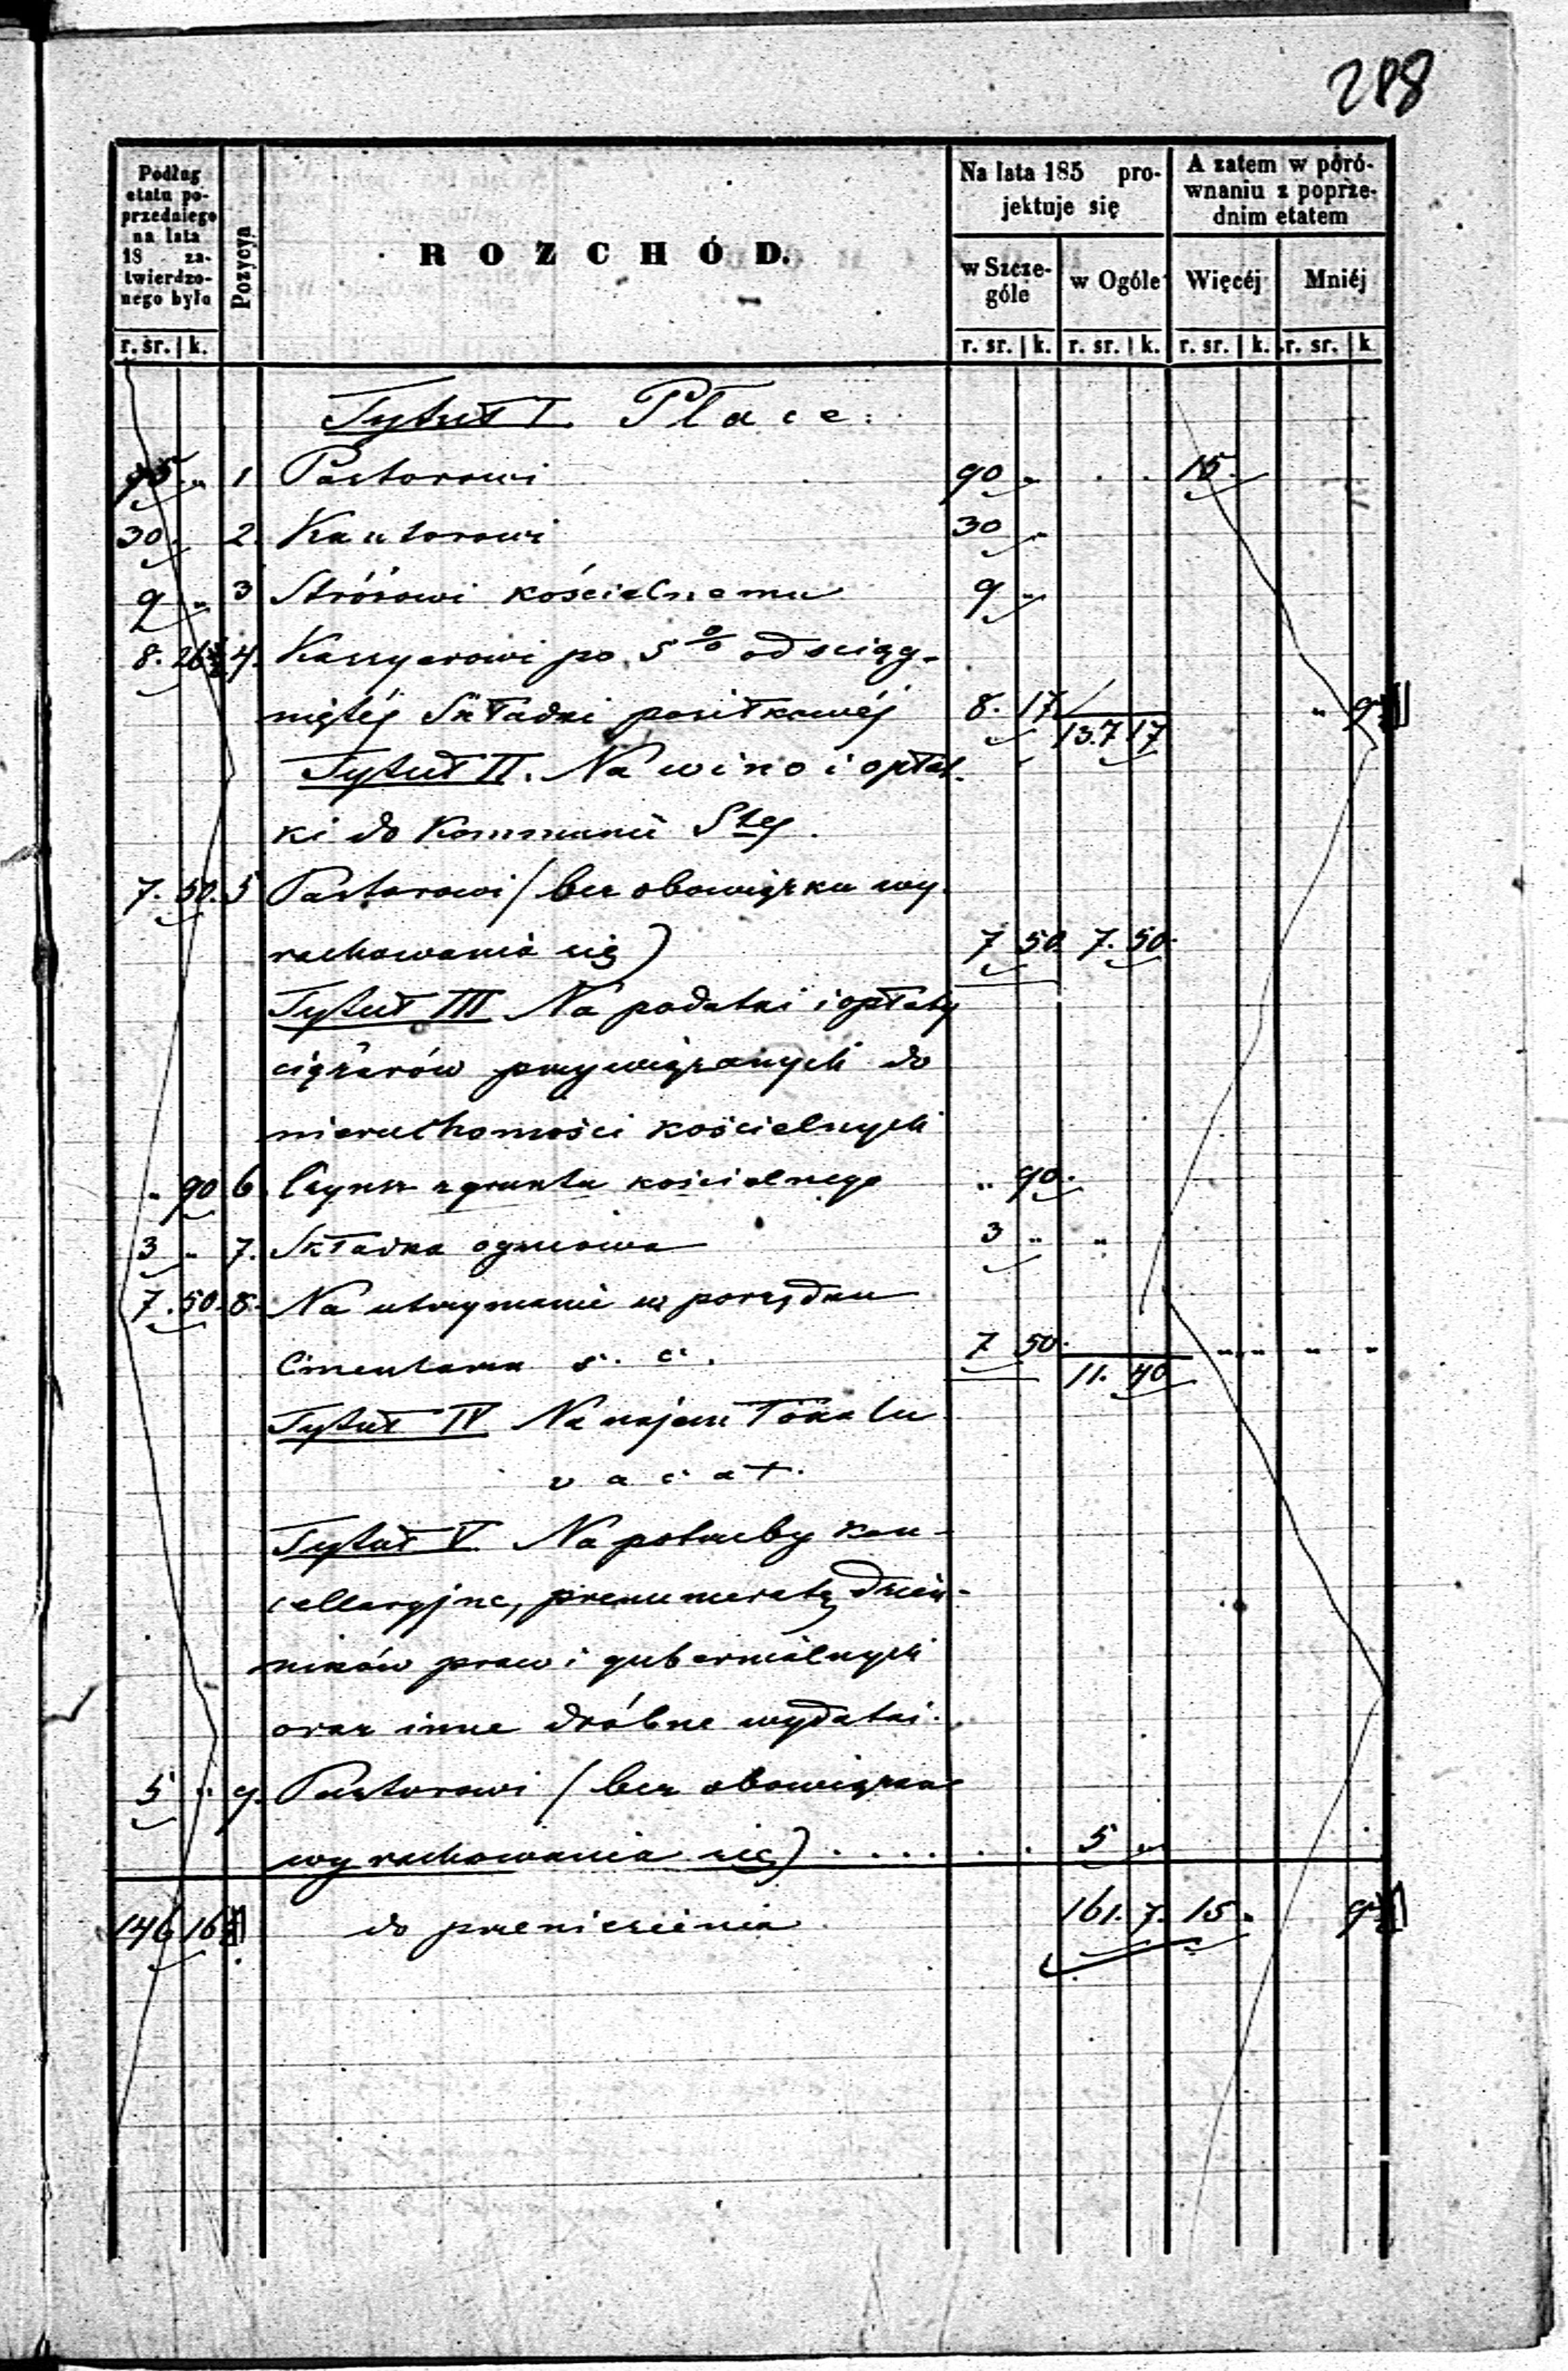 288
Podług etatu poprzedniego na lata 18 zatwierdzonego było
Pozycya
ROZCHÓD.
Na lata 185 projektuje się
A zatem w porównaniu z poprzednim etatem
w Szczególe
w Ogóle
Więcéj
Mniéj
r. sr. k. r. sr. k. r. sr. k. r. sr. k. r. sr. k.
Tytuł I. Płace:
75 „ 1 Pastorowi 90 „ . . 15.
30 . 2. Kantorowi 30 „
9 „ 3 Stróżowi kościelnemu 9 „
8. 26½ 4. Kassyerowi po 5 % od sciąg-
niętéj Składki posiłkowéj 8. 17 137 17 „ 9½
Tytuł II. Na wino i opłat-
ki do Kommunii Stej.
7. 50. 5 Pastorowi / bez obowiązku wy-
rachowania się) 7 50. 7. 50.
Tytuł III Na podatki i opłaty
ciężarów przywiązanych do
nieruchomości kościelnych
„ 90 6 Czynsz z gruntu kościelnego „ 90.
3 „ 7. Składka ogniowa 3 „ „
7. 50. 8. Na utrzymanie w porządku
Cmentarza s. c. 7 50. 11. 40 „ „ „ „
Tytuł IV Na najem Lokalu
vacat.
Tytuł V Na potrzeby kan-
cellaryjne, prenumeratę dzien-
ników praw i gubernialnych
oraz inne dróbne wydatki.
5 „ 9. Pastorowi / bez obowiązku
wyrachowania się) . . . . . . 5 „
146 16½ do przeniesienia 161. 7. 15 . 9½